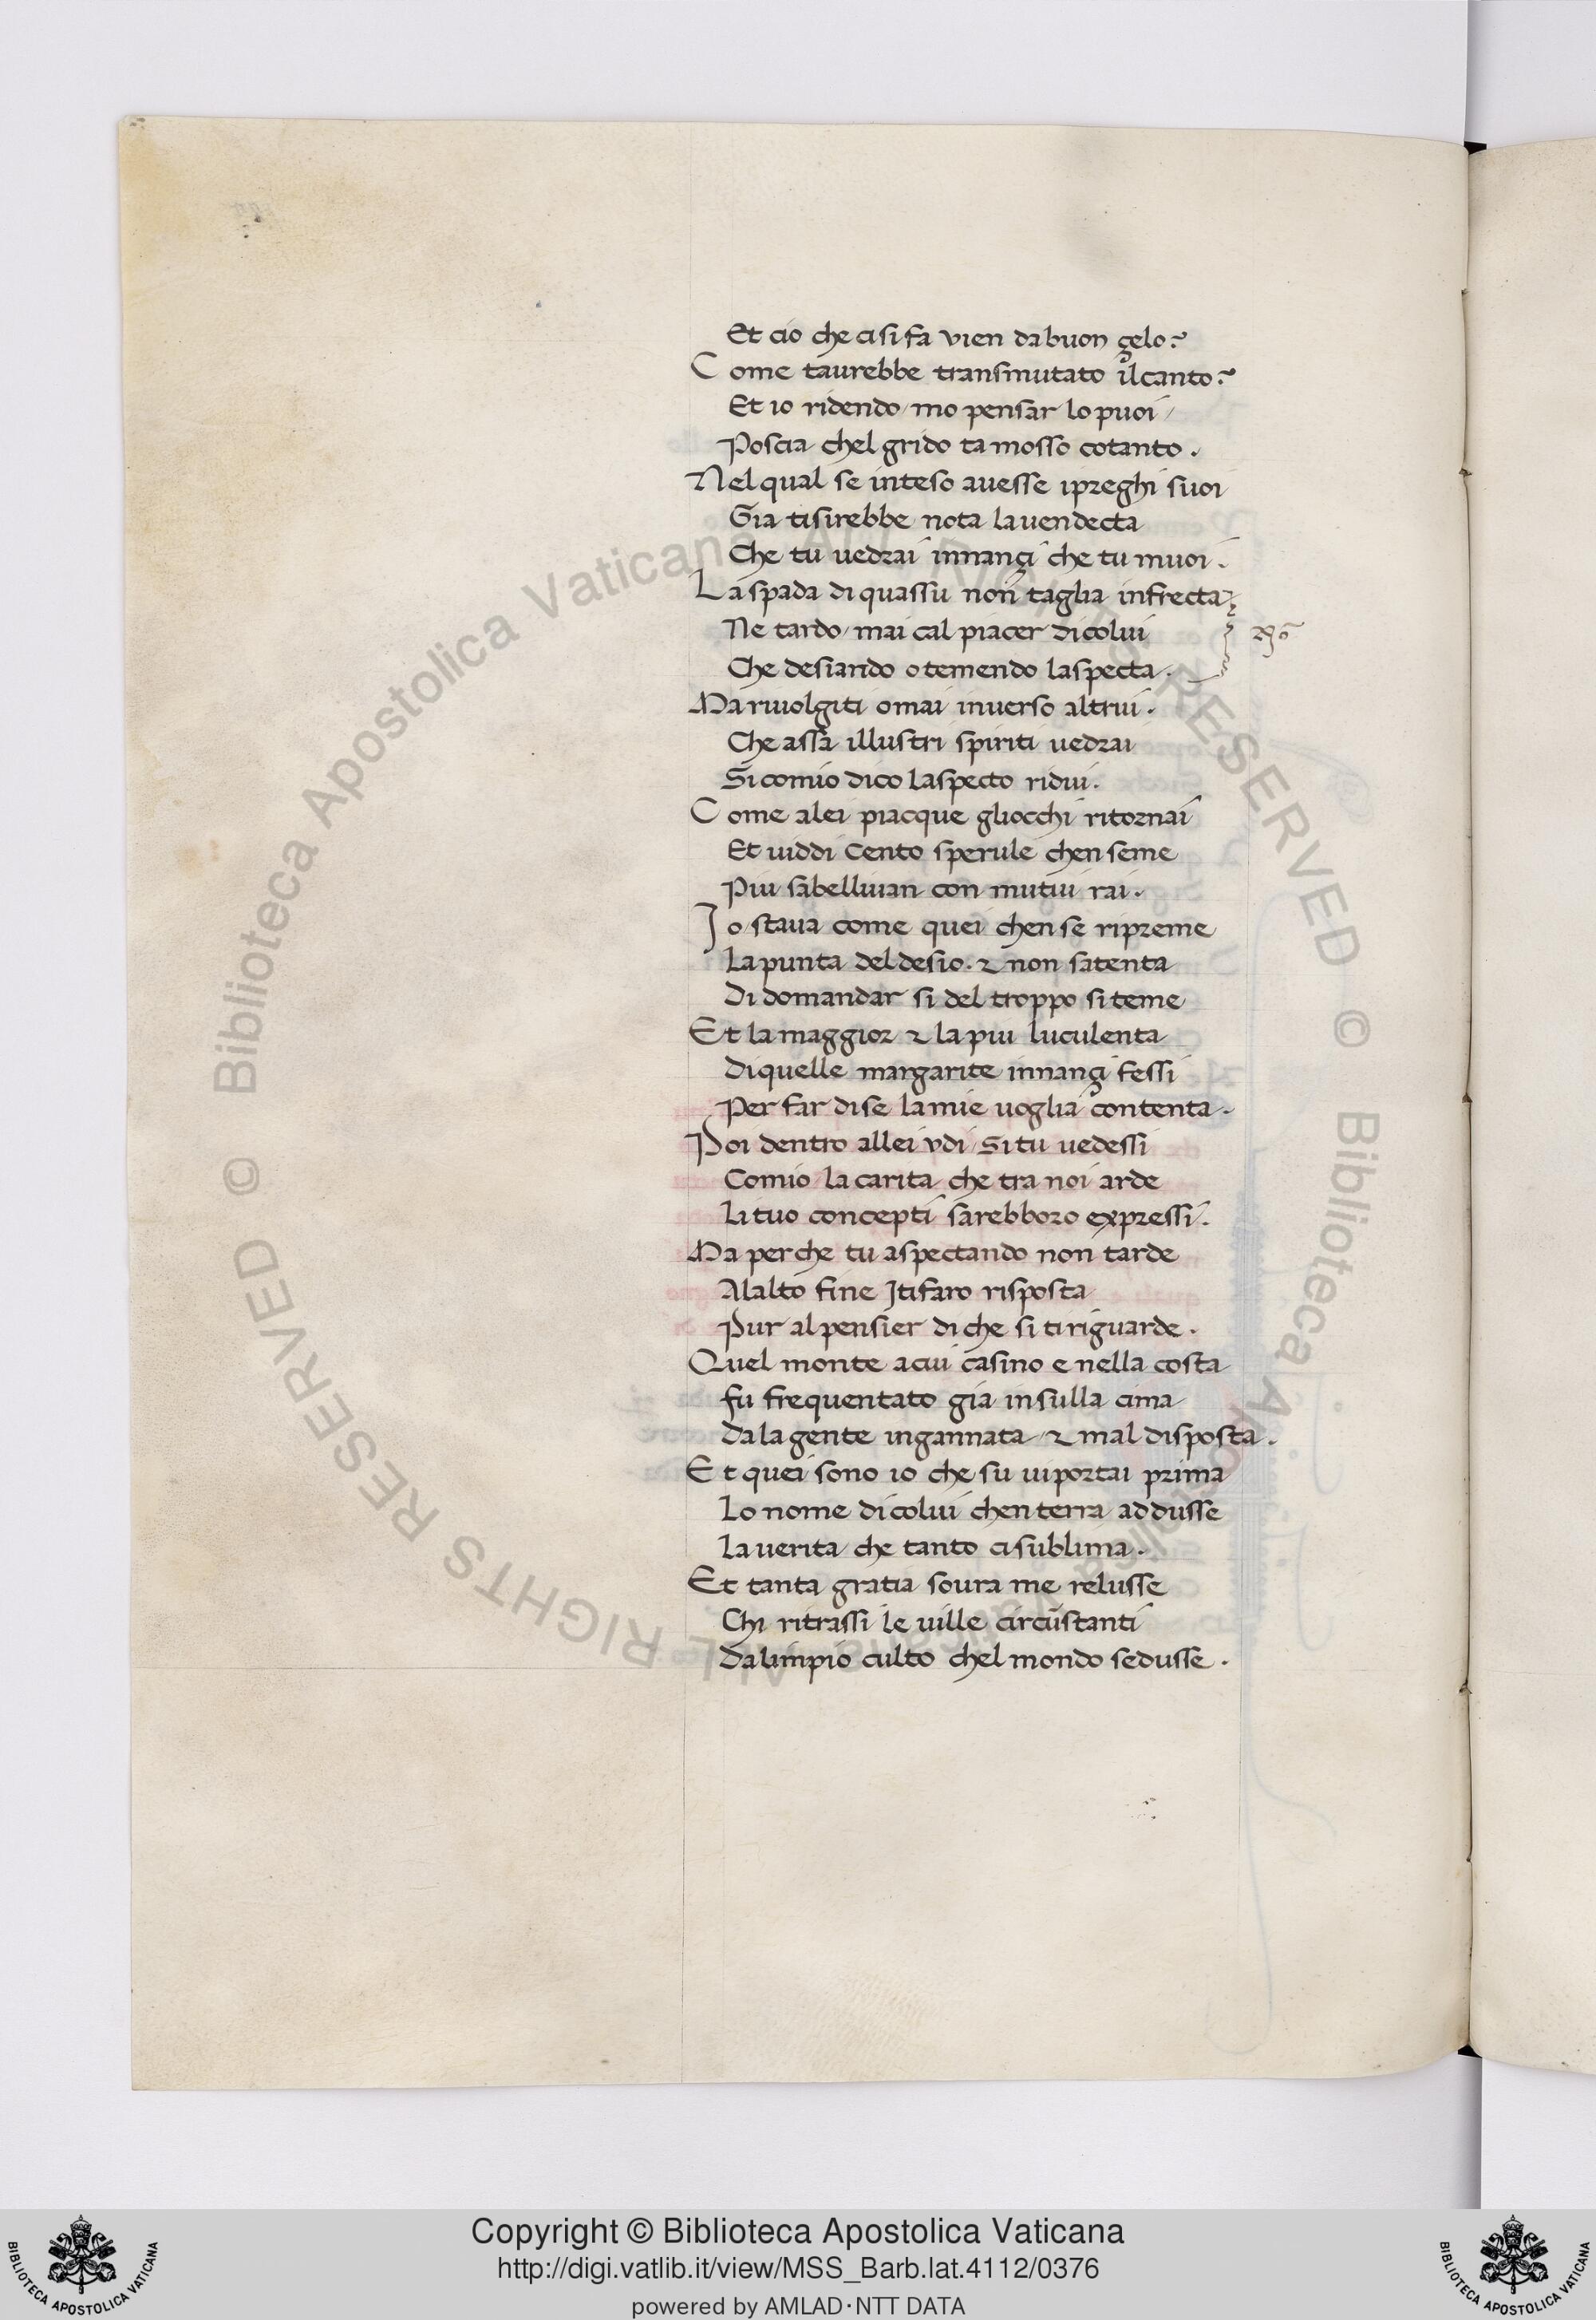 Et cio che ci si fa vien da buon çelo?
Come taurebbe transmutato il canto?
Et io ridendo / mo pensar lo puoi /
Poscia chel grido ta mosso cotanto.
Nel qual se inteso auesse i preghi suoi
Gia ti sirebbe nota la uendecta
Che tu uedrai innançi che tu muoi.
La spada di quassu non taglia infrecta
Ne tardo / mai cal piacer di colui
Che desiando o temendo laspecta.
Ma riuolgiti omai inuerso altrui.
Che assa illustri spiriti uedrai
Si comio dico laspecto ridui.
Come a lei piacque gliocchi ritornai
Et uiddi Cento sperule chen seme
Piu sabelliuan con mutui rai.
Jo staua come quei chen se ripreme
La punta del desio. & non satenta
Di domandar si del troppo si teme
Et la maggior & la piu luculenta
Di quelle margarite innançi fessi
Per far di se la mie uoglia contenta.
Poi dentro allei vdi / Si tu uedessi
Comio la carita che tra noi arde
Li tuo concepti sarebboro expressi.
Ma perche tu aspectando non tarde
Alalto fine J ti faro risposta
Pur al pensier di che si ti riguarde.
Quel monte a cui casino e nella costa
fu frequentato gia in sulla cima
Da la gente ingannata & mal disposta.
Et quei sono io che su ui portai prima
Lo nome di colui chen terra addusse
La uerita che tanto ci sublima.
Et tanta gratia soura me relusse
Chi ritrassi le uille circūstanti
Da limpio culto chel mondo sedusse.
Copyright © Biblioteca Apostolica Vaticana
http://digi.vatlib.it/view/MSS_Barb.lat.4112/0376
powered by AMLAD·NTT DATA
BIBLIOTECA APOSTOLICA VATICANA
BIBLIOTECA APOSTOLICA VATICANA
© Biblioteca Apostolica Vaticana ALL RIGHTS RESERVED © Biblioteca Apostolica Vaticana ALL RIGHTS RESERVED